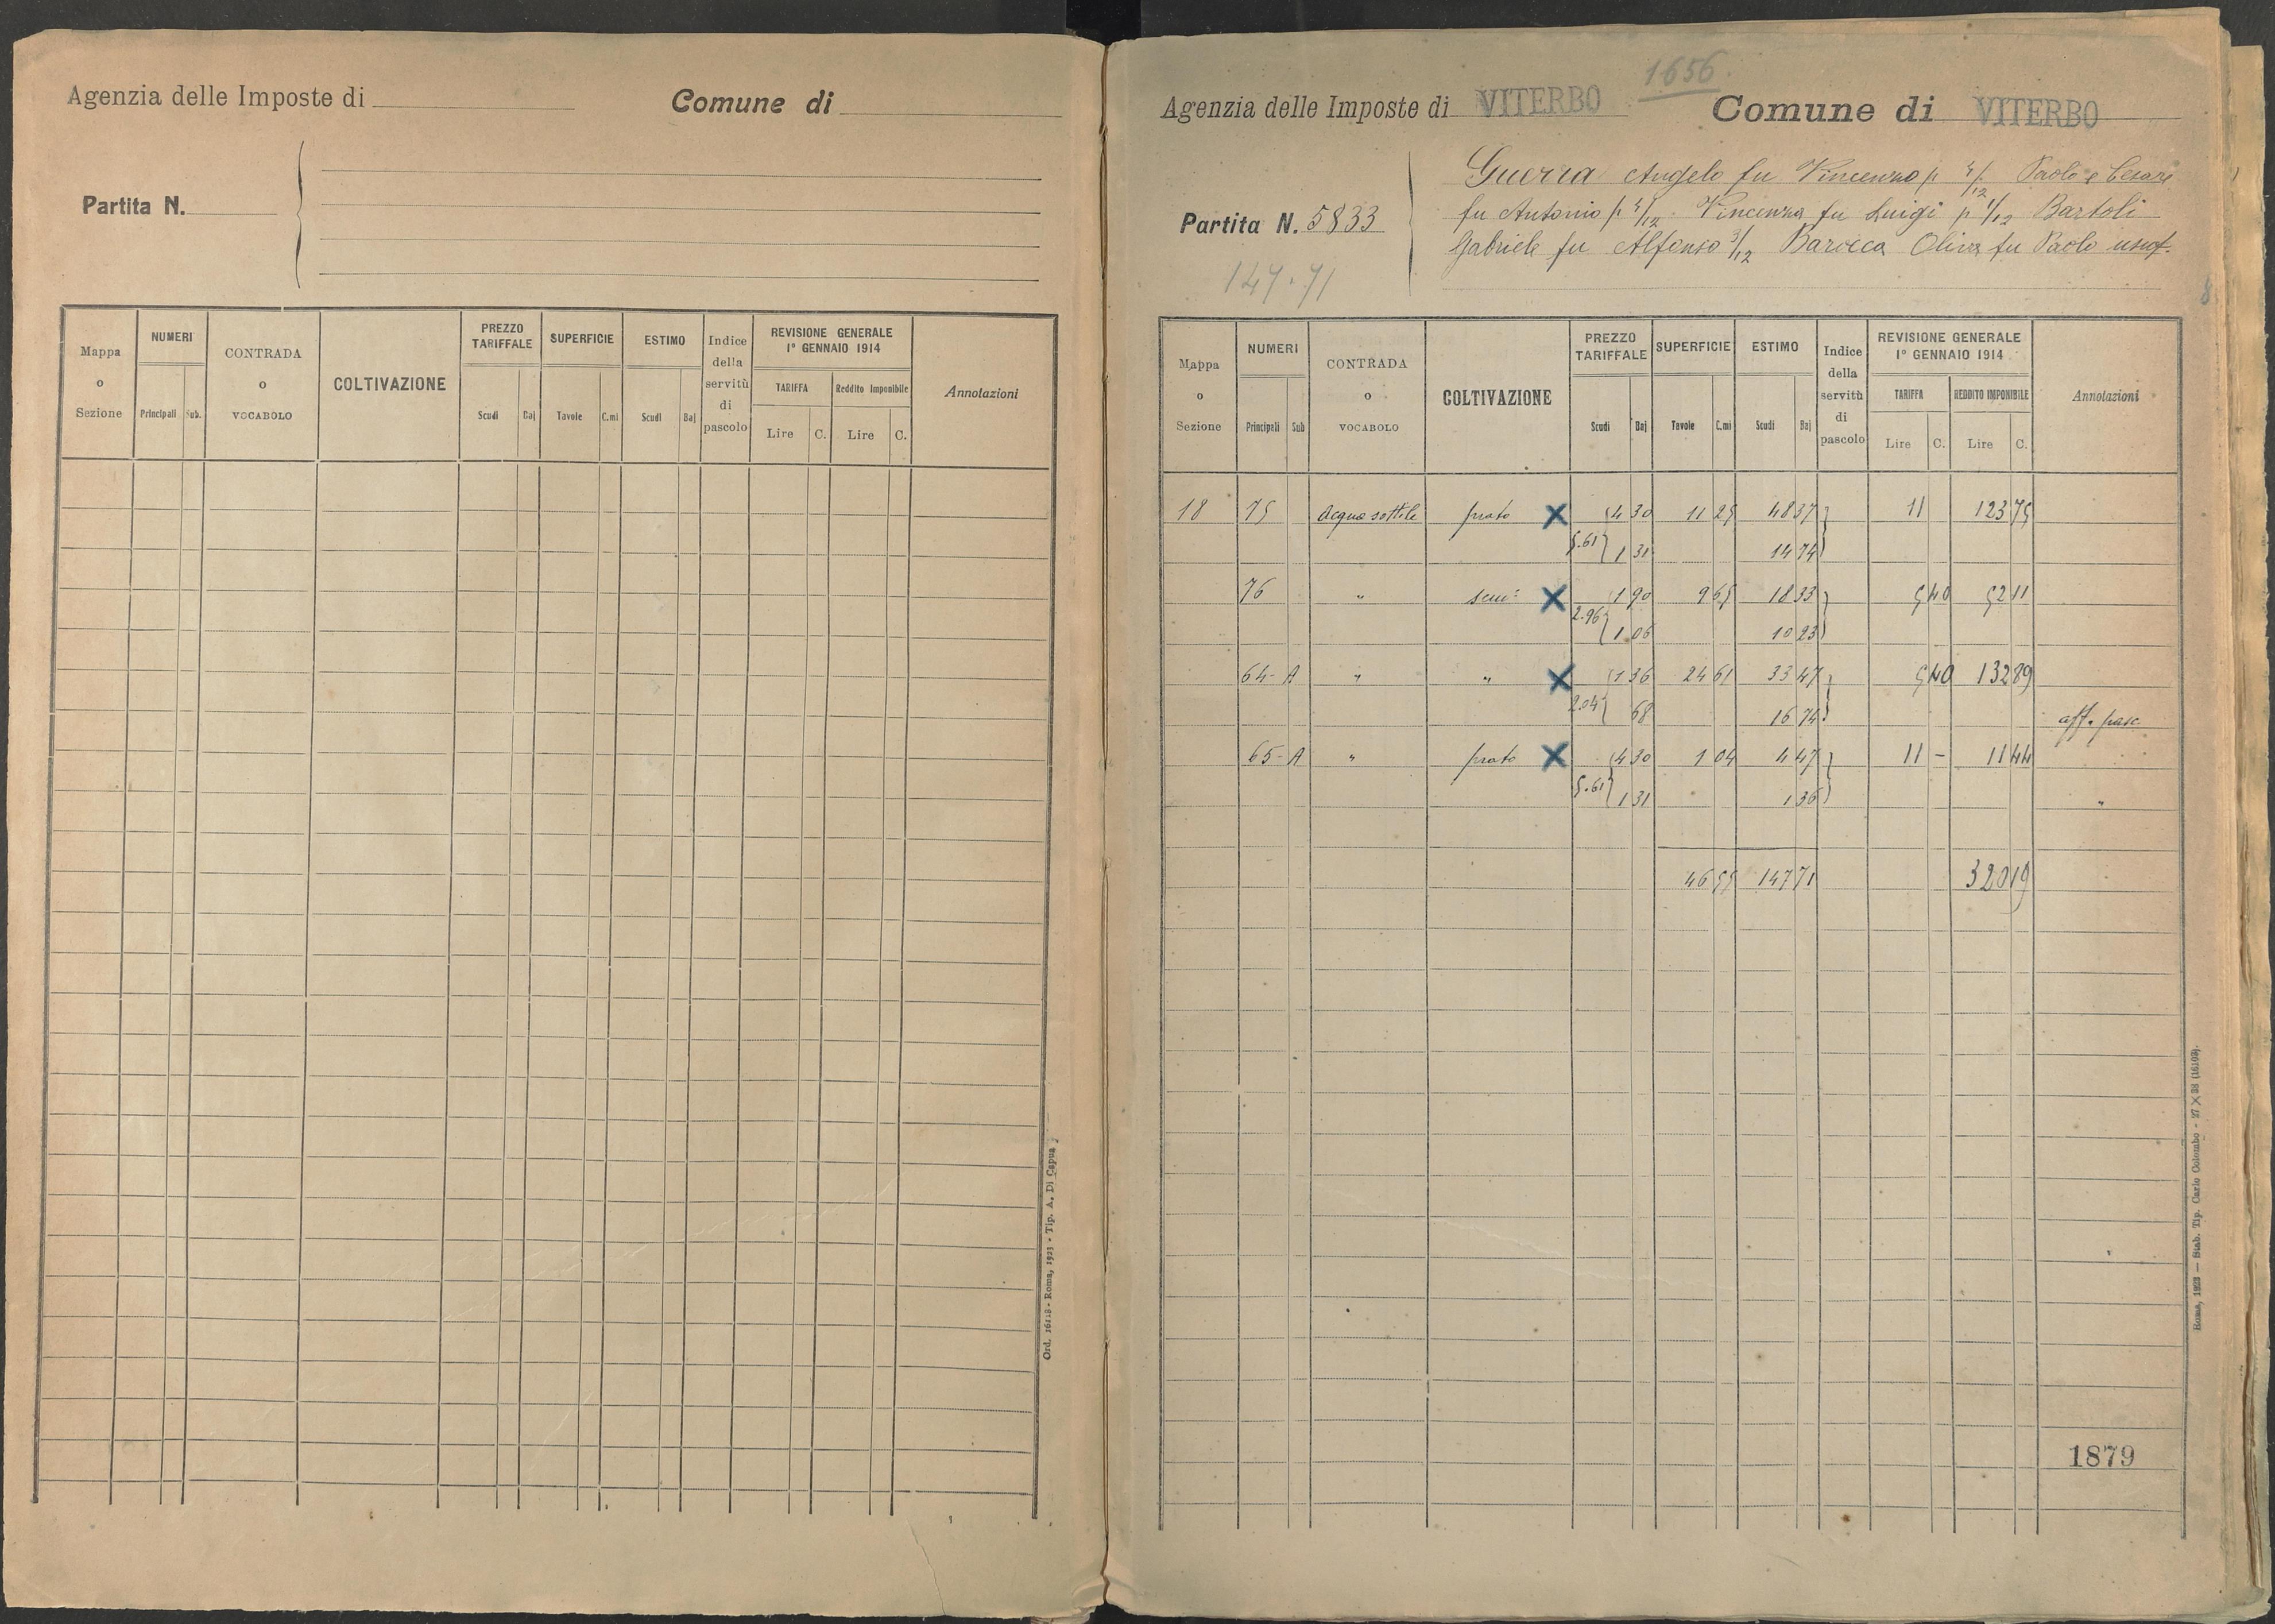 Agenzia delle Imposte di Comune di
Partita N.
Mappa o Sezione NUMERI Principali Sub. CONTRADA o VOCABOLO COLTIVAZIONE PREZZO TARIFFALE Scudi Baj SUPERFICIE Tavole C.mi ESTIMO Scudi Baj Indice della servitù di pascolo REVISIONE GENERALE 1° GENNAIO 1914 TARIFFA Lire C. Reddito Imponibile Lire C. Annotazioni
Ord. 16118 - Roma, 1923 - Tip. A. Di Capua
1656.
Agenzia delle Imposte di VITERBO Comune di VITERBO
Guerra Angelo fu Vincenzo p. 4/12 Paolo e Cesare
Partita N. 5833 fu Antonio p. 4/12 Vincenza fu Luigi p 1/12 Bartoli
Gabriele fu Alfonso 3/12 Barocca Oliva fu Paolo usuf.
147.71
8
Mappa o Sezione NUMERI Principali Sub CONTRADA o VOCABOLO COLTIVAZIONE PREZZO TARIFFALE Scudi Baj SUPERFICIE Tavole C.mi ESTIMO Scudi Baj Indice della servitù di pascolo REVISIONE GENERALE 1° GENNAIO 1914 TARIFFA Lire C. REDDITO IMPONIBILE Lire C. Annotazioni
18 75 Acqua sottile prato X 4 30 11 25 48 37 11 123 75
5.61 1 31 14 74
76 " sem: X 1 90 9 65 18 33 5 40 52 11
2.96 1 06 10 23
64- A " " X 1 36 24 61 33 47 5 40 132 89
2.04 68 16 74 aff. pasc
65- A " prato X 4 30 1 04 4 47 11 - 11 44
5.61 1 31 1 36 "
46 55 147 71 320 19
1879
Roma, 1923 — Stab. Tip. Carlo Colombo - 27 X 38 (16102).